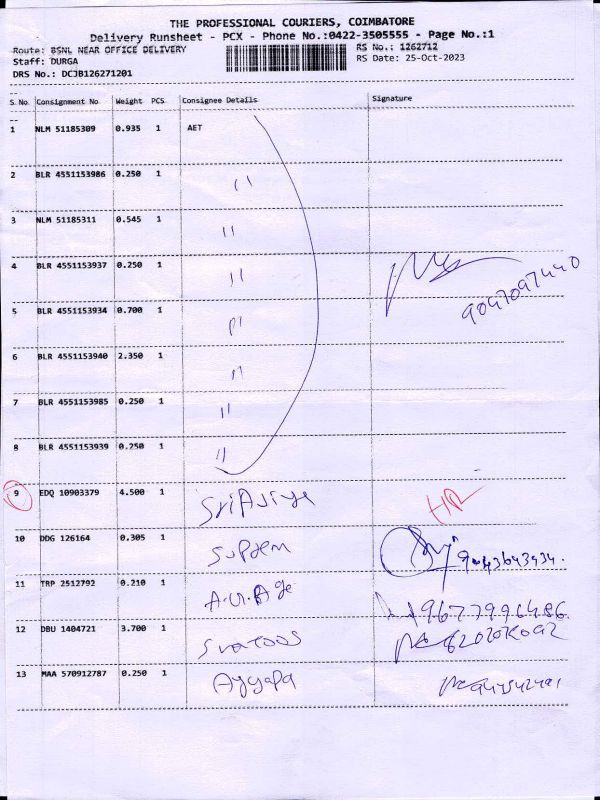 THE PROFESSIONAL COURIERS, COIMBATORE
Delivery Runsheet - PCX - Phone No.:0422-3505555 - Page No.:1
Route: BSNL NEAR OFFICE DELIVERY RS No.: 1262712
Staff: DURGA RS Date: 25-Oct-2023
DRS No.: DCJB126271201
S. No. Consignment No Weight PCS Consignee Details Signature
1 NLM 51185309 0.935 1 AET
2 BLR 4551153986 0.250 1 "
3 NLM 51185311 0.545 1 "
4 BLR 4551153937 0.250 1 "
5 BLR 4551153934 0.700 1 "
6 BLR 4551153940 2.350 1 "
7 BLR 4551153985 0.250 1 "
8 BLR 4551153939 0.250 1 "
9 EDQ 10903379 4.500 1
10 DDG 126164 0.305 1
11 TRP 2512792 0.210 1
12 DBU 1404721 3.700 1
13 MAA 570912787 0.250 1 Ayyapa